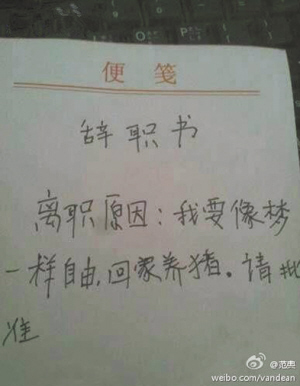 便笺
辞职书
离职原因：我要像梦
一样自由，回家养猪。请批
准
@范典
weibo.com/vandean